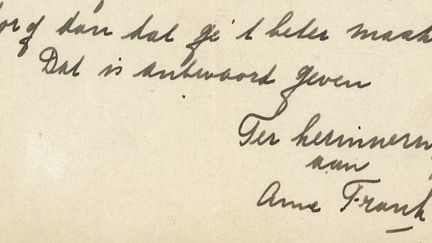 Zorg dan dat ge 't beter maak
Dat is antwoord geven
Ter herinnerin
aan
Anne Frank